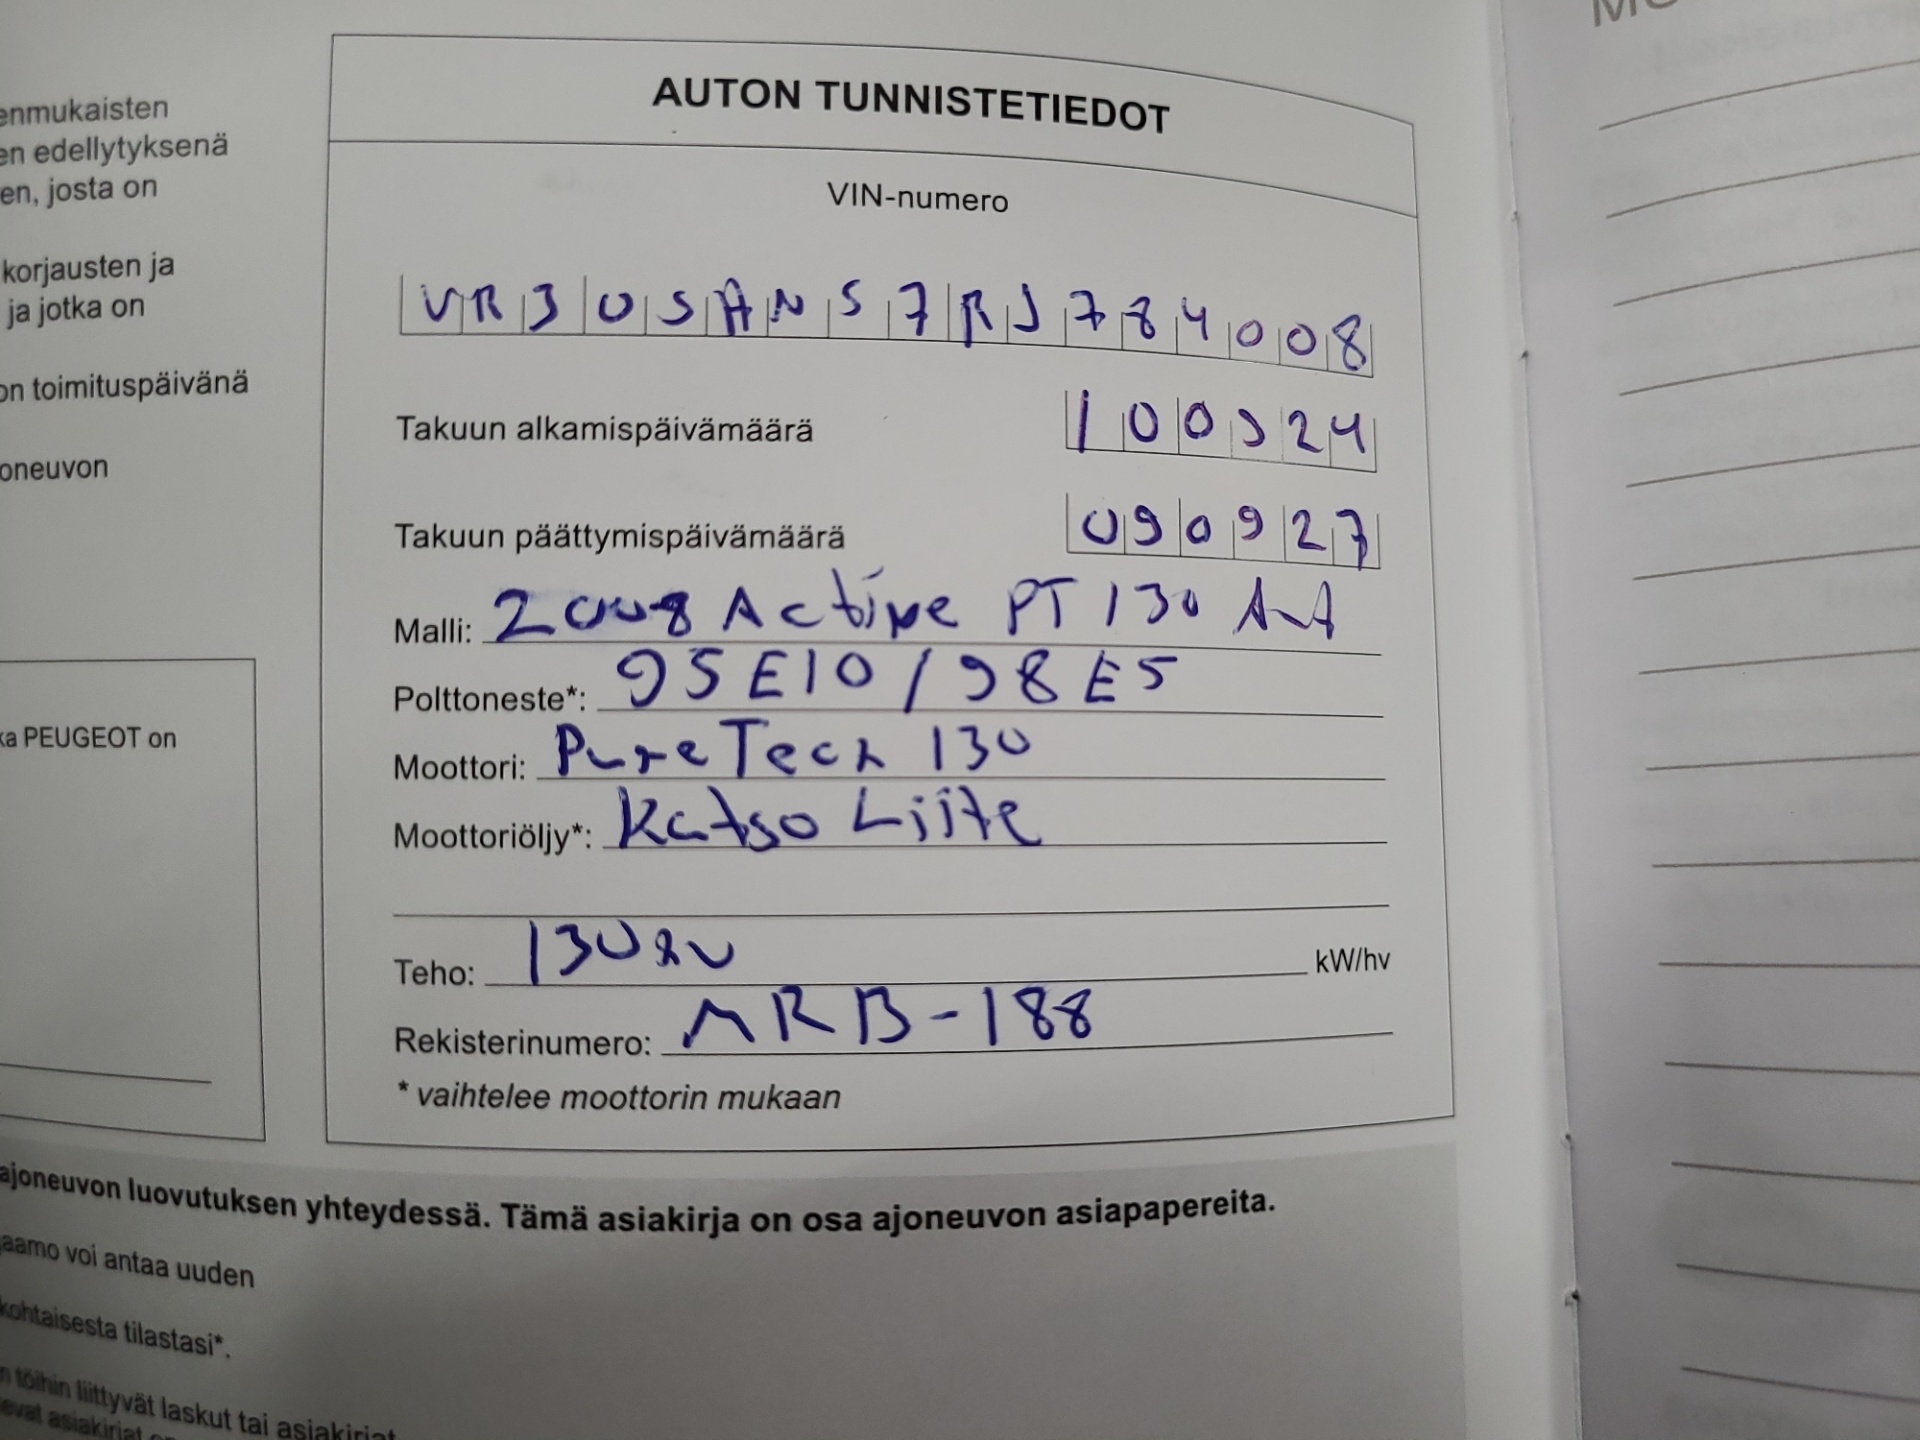 enmukaisten
en edellytyksenä
en, josta on
korjausten ja
ja jotka on
on toimituspäivänä
oneuvon
ka PEUGEOT on
AUTON TUNNISTETIEDOT
VIN-numero
VR3USANS7RJ784008
Takuun alkamispäivämäärä 100924
Takuun päättymispäivämäärä 090927
Malli: 2008 Active PT 130 Aut
Polttoneste*: 95E10/98E5
Moottori: PureTech 130
Moottoriöljy*: Katso Liite
Teho: 130hv kW/hv
Rekisterinumero: MRB-188
* vaihtelee moottorin mukaan
ajoneuvon luovutuksen yhteydessä. Tämä asiakirja on osa ajoneuvon asiapapereita.
aamo voi antaa uuden
kohtaisesta tilastasi*.
n töihin liittyvät laskut tai asiakirjat